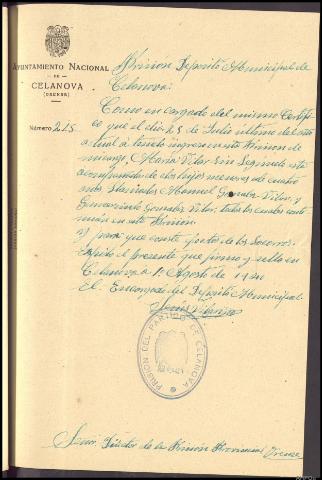 AYUNTAMIENTO NACIONAL
DE
CELANOVA
(ORENSE)
Número 215
Prision Deposito Municipal de
Celanova:
Como encargado del mismo Certifi-
co que el dia 25 de Julio ultimo del año
actual á tenido ingreso en esta Prision de
Maria Vilar sin Segundo esta
acompañada de dos hijos menores de cuatro
años llamados Manuel Gonzalez Vilar, y
Gumersindo Gonzalez Vilar, todos los cuales conti-
nuan en esta Prision.
Y para que conste efectos de los Socorros
Expido el presente que firmo y sello en
Celanova a 1º Agosto de 1940
El Encargado del Deposito Municipal
PRISION DEL PARTIDO DE CELANOVA
Senor Director de la Prision Provincial Orense